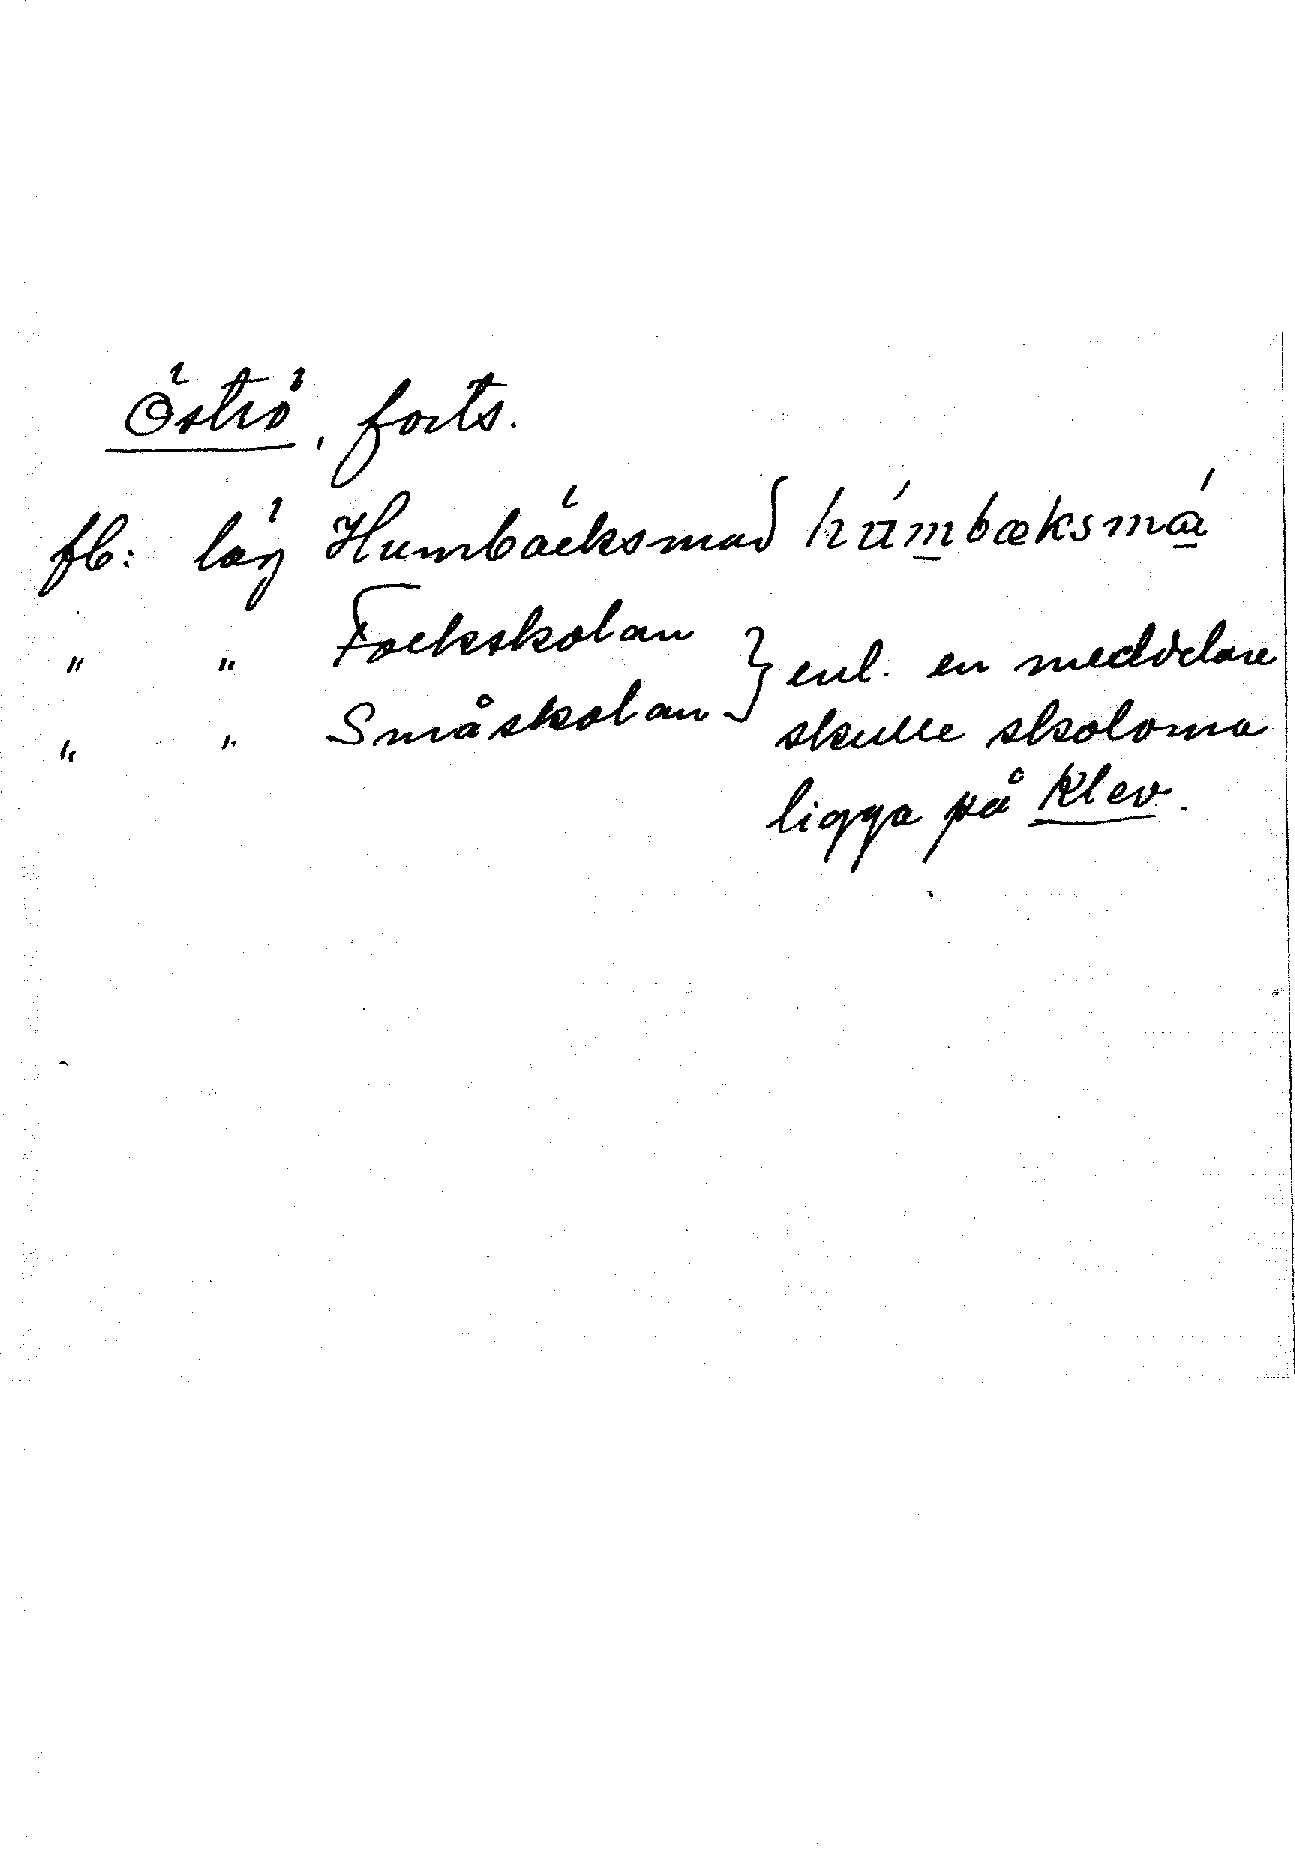 Öströ, forts.
fb: läg Humbäcksmad húmbæksmá
" " Folkskolan } enl. en meddelare
" " Småskolan skulle skolorna
ligga på Klev.